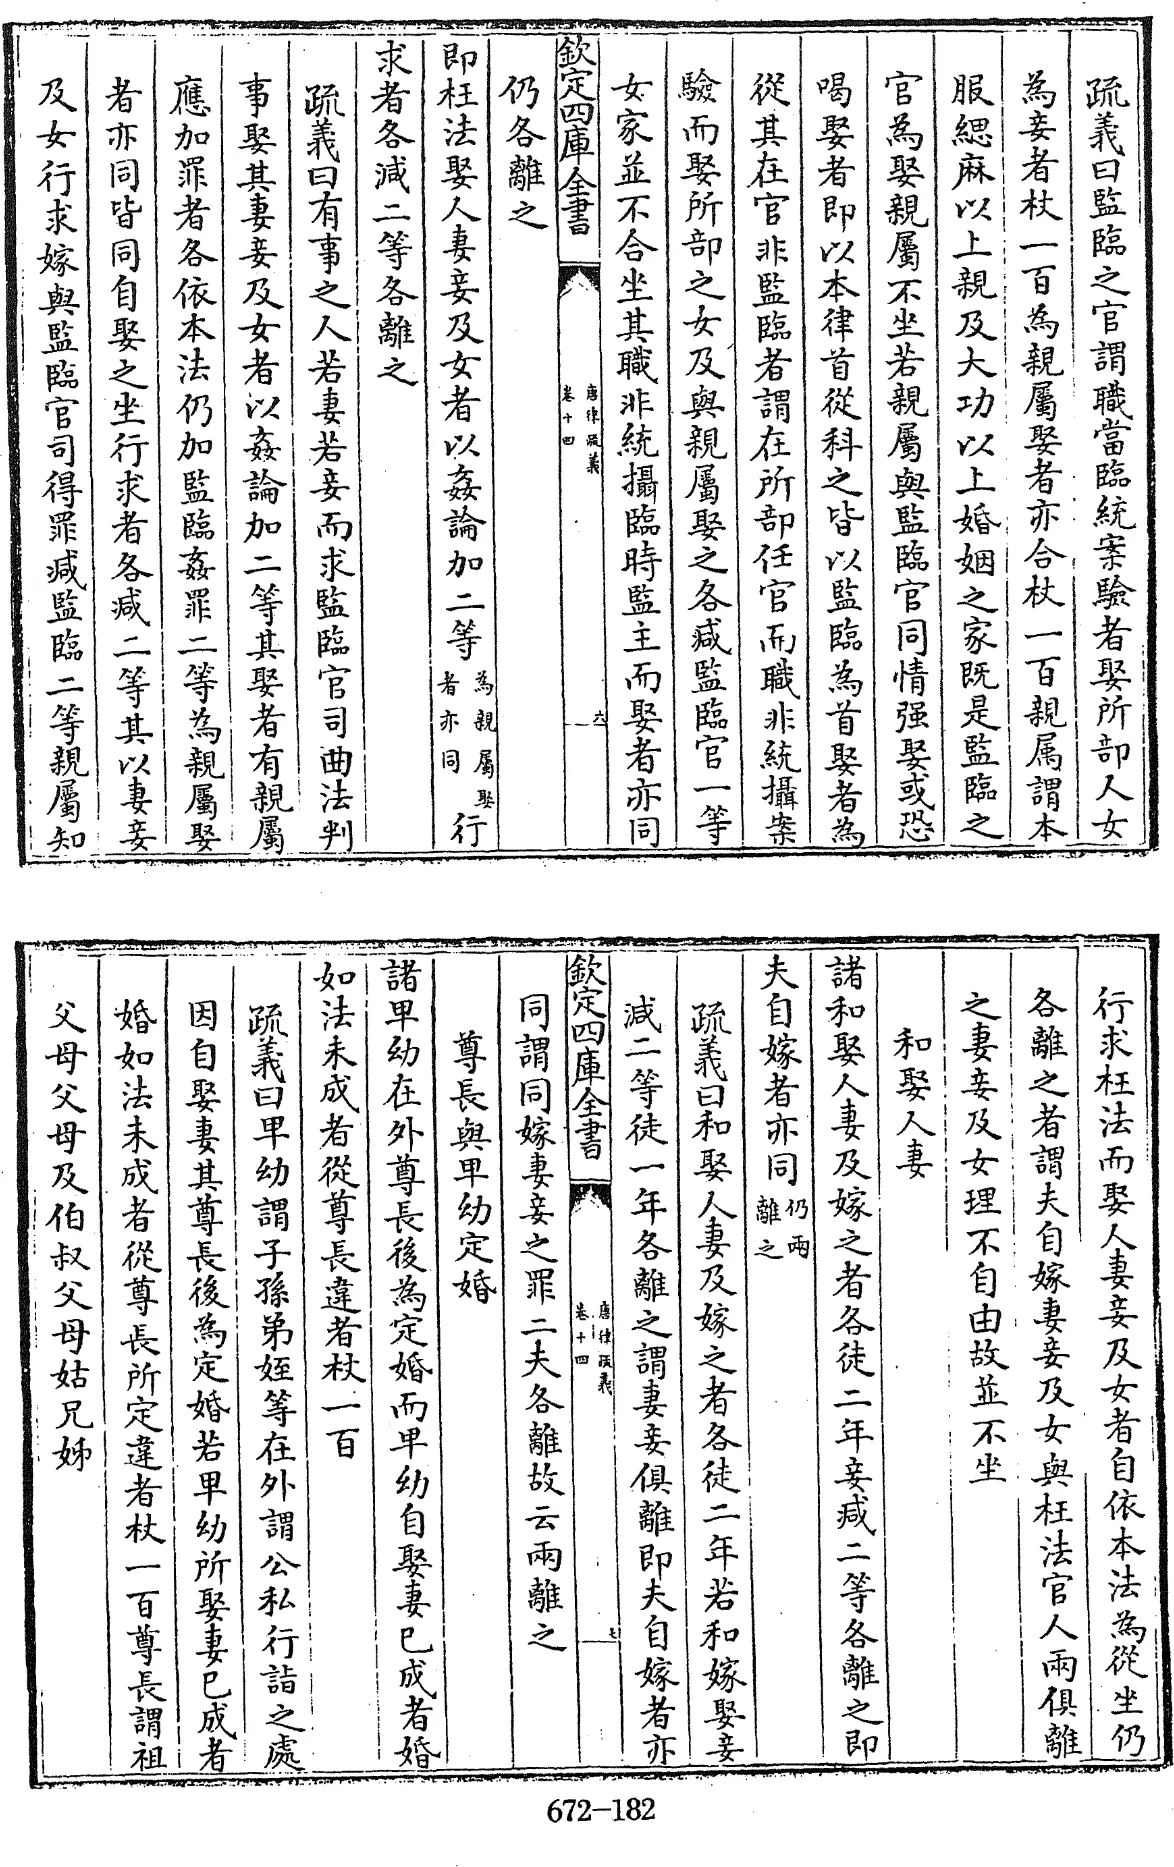 疏義曰監臨之官謂職當臨統案驗者娶所部人女
為妾者杖一百為親屬娶者亦合杖一百親属謂本
服緦麻以上親及大功以上婚姻之家既是監臨之
官為娶親屬不坐若親屬與監臨官同情强娶或恐
喝娶者即以本律首從科之皆以監臨為首娶者為
從其在官非監臨者謂在所部任官而職非統攝案
驗而娶所部之女及與親屬娶之各减監臨官一等
女家並不合坐其職非統攝臨時監主而娶者亦同
欽定四庫全書
唐律疏義
卷十四
六
仍各離之
即枉法娶人妻妾及女者以姦論加二等
為親屬娶
者亦同
行
求者各減二等各離之
疏義曰有事之人若妻若妾而求監臨官司曲法判
事娶其妻妾及女者以姦論加二等其娶者有親屬
應加罪者各依本法仍加監臨姦罪二等為親屬娶
者亦同皆同自娶之坐行求者各減二等其以妻妾
及女行求嫁與監臨官司得罪減監臨二等親屬知
行求枉法而娶人妻妾及女者自依本法為從坐仍
各離之者謂夫自嫁妻妾及女與枉法官人兩俱離
之妻妾及女理不自由故並不坐
和娶人妻
諸和娶人妻及嫁之者各徒二年妾減二等各離之即
夫自嫁者亦同
仍兩
離之
疏義曰和娶人妻及嫁之者各徒二年若和嫁娶妾
減二等徒一年各離之謂妻妾俱離即夫自嫁者亦
欽定四庫全書
唐律疏義
卷十四
七
同謂同嫁妻妾之罪二夫各離故云兩離之
尊長與卑幼定婚
諸卑幼在外尊長後為定婚而卑幼自娶妻已成者婚
如法未成者從尊長違者杖一百
疏義曰卑幼謂子孫弟姪等在外謂公私行詣之處
因自娶妻其尊長後為定婚若卑幼所娶妻已成者
婚如法未成者從尊長所定違者杖一百尊長謂祖
父母父母及伯叔父母姑兄姊
672-182